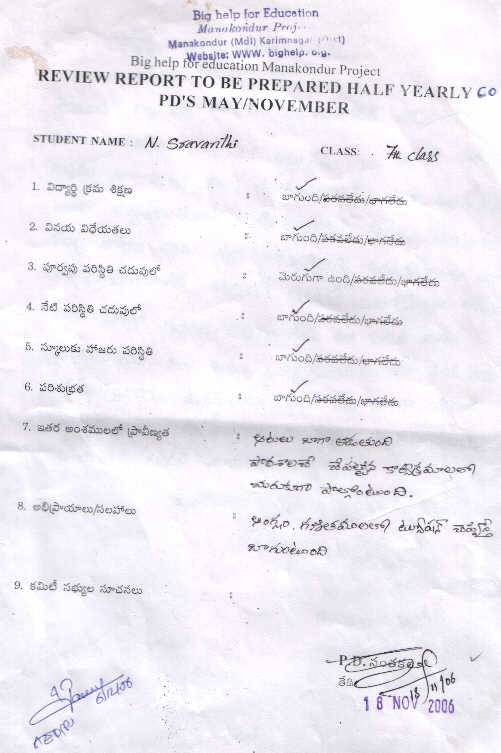 Big help for Education
Manakondur Project
Manakondur (Mdl) Karimnagar (Dist)
Website: WWW. bighelp. org.
Big help for education Manakondur Project
REVIEW REPORT TO BE PREPARED HALF YEARLY CO
PD'S MAY/NOVEMBER
STUDENT NAME : N. Sravanthi CLASS: . 7th class
1. విద్యార్థి క్రమ శిక్షణ : బాగుంది/పరవలేదు/బాగలేదు
2. వినయ విధేయతలు : బాగుంది/పరవలేదు/బాగలేదు
3. పూర్వపు పరిస్థితి చదువులో : మెరుగుగా ఉంది/పరవలేదు/బాగలేదు
4. నేటి పరిస్థితి చదువులో : బాగుంది/పరవలేదు/బాగలేదు
5. స్కూలుకు హాజరు పరిస్థితి : బాగుంది/పరవలేదు/బాగలేదు
6. పరిశుభ్రత : బాగుంది/పరవలేదు/బాగలేదు
7. ఇతర అంశములలో ప్రావీణ్యత : ఆటలు బాగా ఆడుతుంది
పాఠశాలలో చేపట్టిన కార్యక్రమాలలో
చురుకుగా పాల్గొంటుంది.
8. అభిప్రాయాలు/సలహాలు : ఆంగ్లం, గణితమాలలో ట్యూషన్ చెప్పిస్తే
బాగుంటుంది
9. కమిటీ సభ్యుల సూచనలు :
P.D. సంతకం
తేది 18/11/06
18 NOV 2006
6/12/06